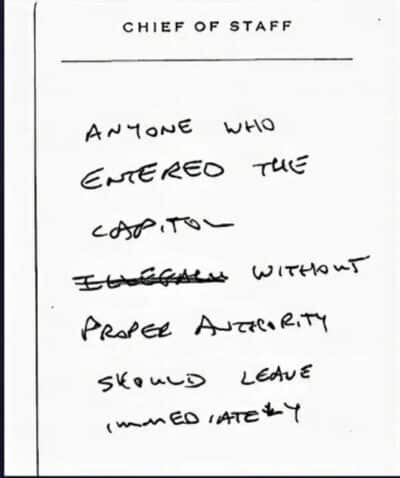 CHIEF OF STAFF
ANYONE WHO
ENTERED THE
CAPITOL
ILLEGALLY WITHOUT
PROPER AUTHORITY
SHOULD LEAVE
IMMEDIATELY